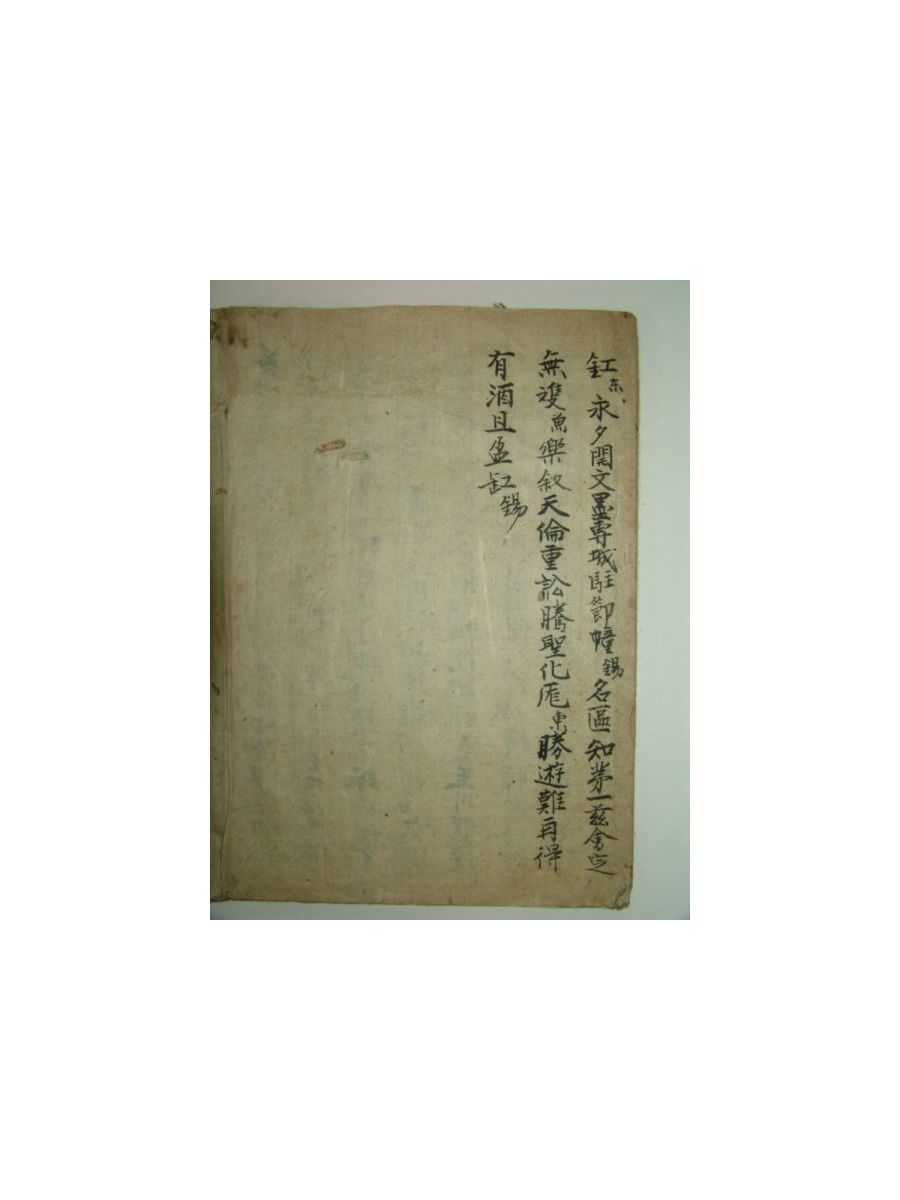 釭东永夕開文墨專城駐節幢錫名區知苐一玆會定
無雙魚樂叙天倫重訟騰聖化厖東勝遊難再得
有酒且盈缸錫